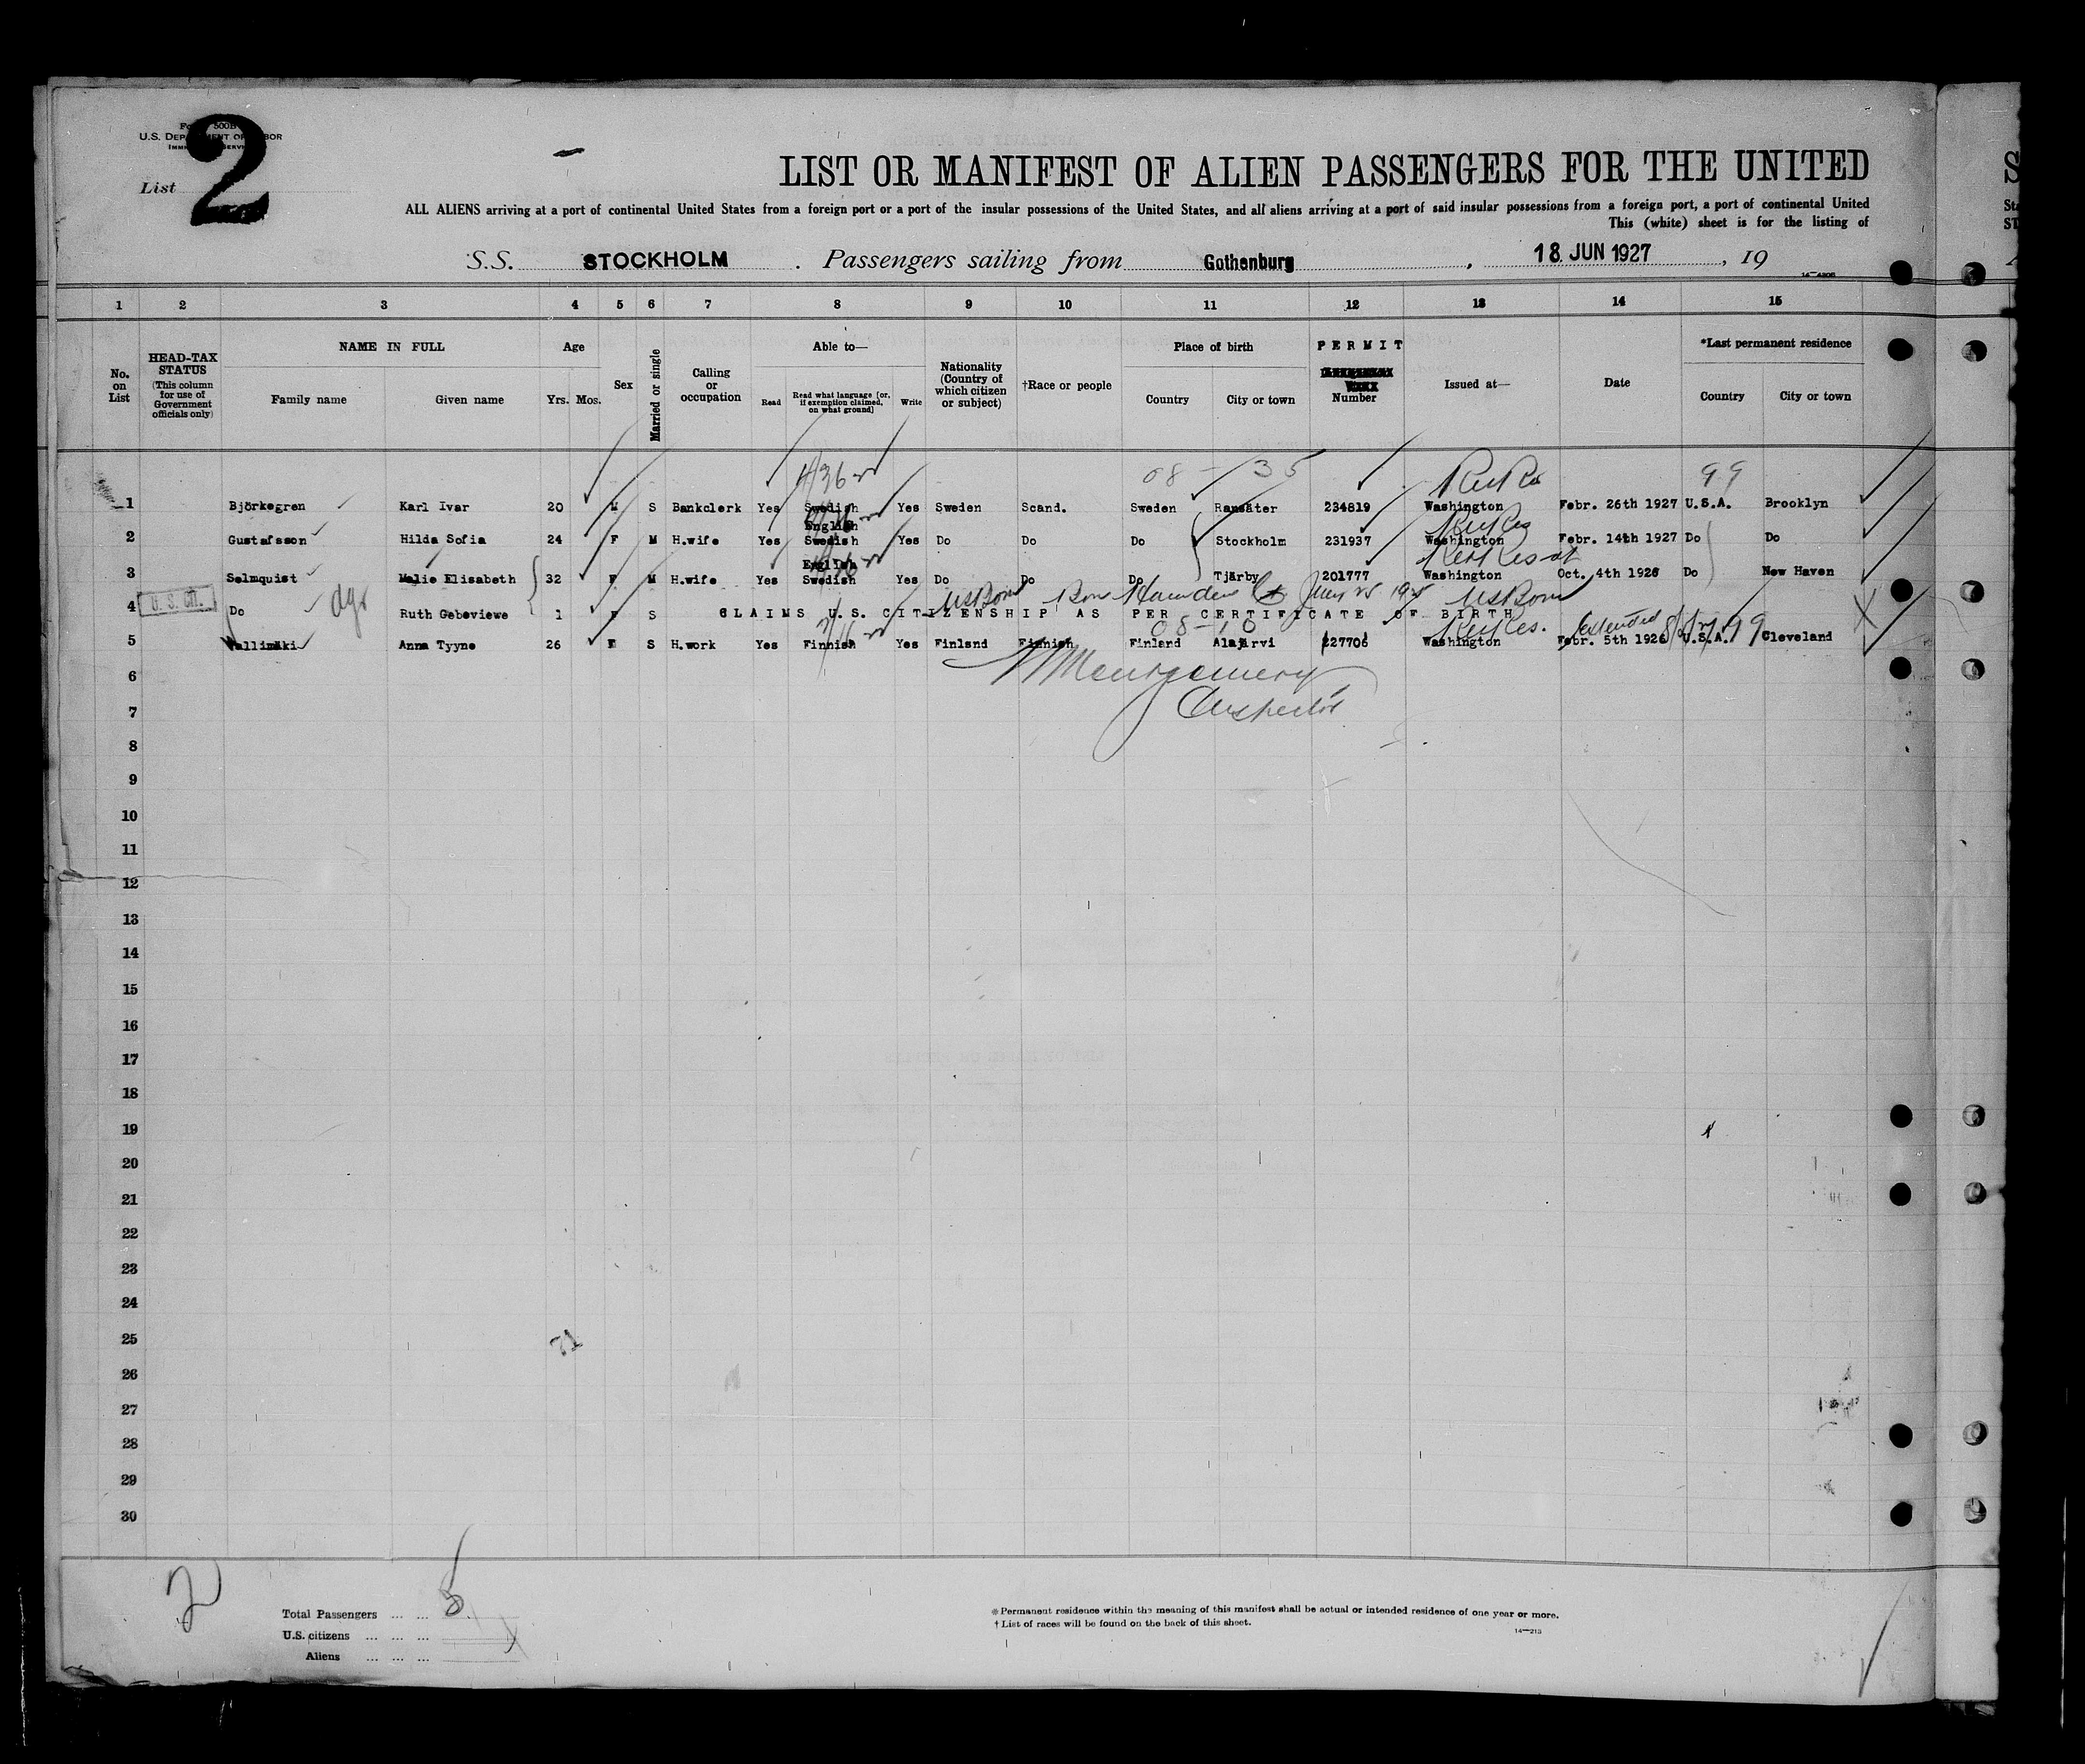 2
U.S. DEPARTMENT OF LABOR
List
LIST OR MANIFEST OF ALIEN PASSENGERS FOR THE UNITED
ALL ALIENS arriving at a port of continental United States from a foreign port or a port of the insular possessions of the United States, and all aliens arriving at a port of said insular possessions from a foreign port, a port of continental United
This (white) sheet is for the listing of
S.S. STOCKHOLM . Passengers sailing from Gothenburg , 18 JUN 1927 , 19
1 2 3 4 5 6 7 8 9 10 11 12 13 14 15
No. on List
HEAD-TAX STATUS (This column for use of Government officials only)
NAME IN FULL Family name Given name
Age Yrs. Mos.
Sex
Married or single
Calling or occupation
Able to— Read Read what language (or, if exemption claimed, on what ground) Write
Nationality (Country of which citizen or subject)
†Race or people
Place of birth Country City or town
PERMIT Number
Issued at—
Date
*Last permanent residence Country City or town
08 - 135 99
1 Björkegren Karl Ivar 20 M S Bankclerk Yes Swedish Yes Sweden Scand. Sweden Ransäter 234819 Washington Febr. 26th 1927 U.S.A. Brooklyn
English
2 Gustafsson Hilda Sofia 24 F M H.wife Yes Swedish Yes Do Do Do Stockholm 231937 Washington Febr. 14th 1927 Do Do
English
3 Selmquist Malie Elisabeth 32 F M H.wife Yes Swedish Yes Do Do Do Tjärby 201777 Washington Oct. 4th 1926 Do New Haven
US Born Born Hamden Ct US Born
4 U.S. Cit. Do Ruth Gebeviewe 1 F S CLAIMS U.S. CITIZENSHIP AS PER CERTIFICATE OF BIRTH
extended
5 Wallimäki Anna Tyyne 26 F S H.work Yes Finnish Yes Finland Finnish Finland Alajärvi 227706 Washington Febr. 5th 1926 U.S.A. 99 Cleveland
Montgomery
Inspector
6
7
8
9
10
11
12
13
14
15
16
17
18
19
20
21
22
23
24
25
26
27
28
29
30
2
Total Passengers ... ... 5
U.S. citizens ... ... ...
Aliens ... ... ...
*Permanent residence within the meaning of this manifest shall be actual or intended residence of one year or more.
†List of races will be found on the back of this sheet.
14—213